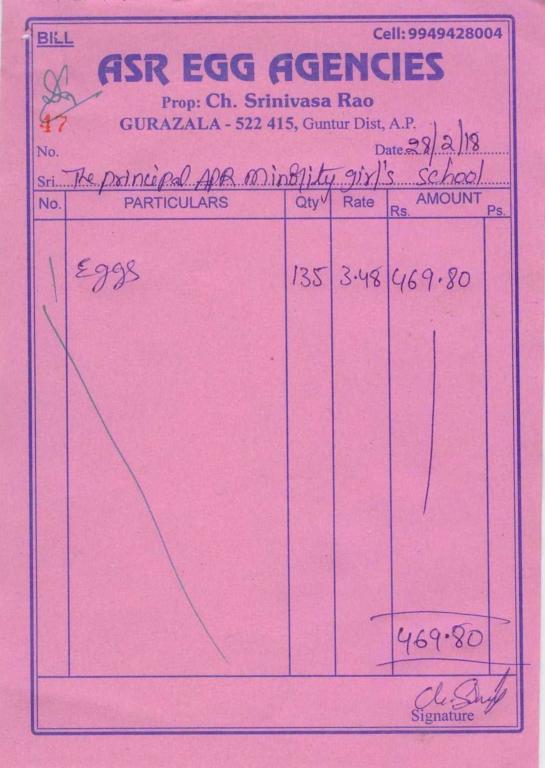 BILL
Cell: 9949428004
ASR EGG AGENCIES
Prop: Ch. Srinivasa Rao
GURAZALA - 522 415, Guntur Dist, A.P.
47
No.
Date 28/2/18
Sri. The principal APR Minority girl's school
No. PARTICULARS Qty Rate AMOUNT
Rs. Ps.
1 Eggs 135 3.48 469.80
469.80
Signature